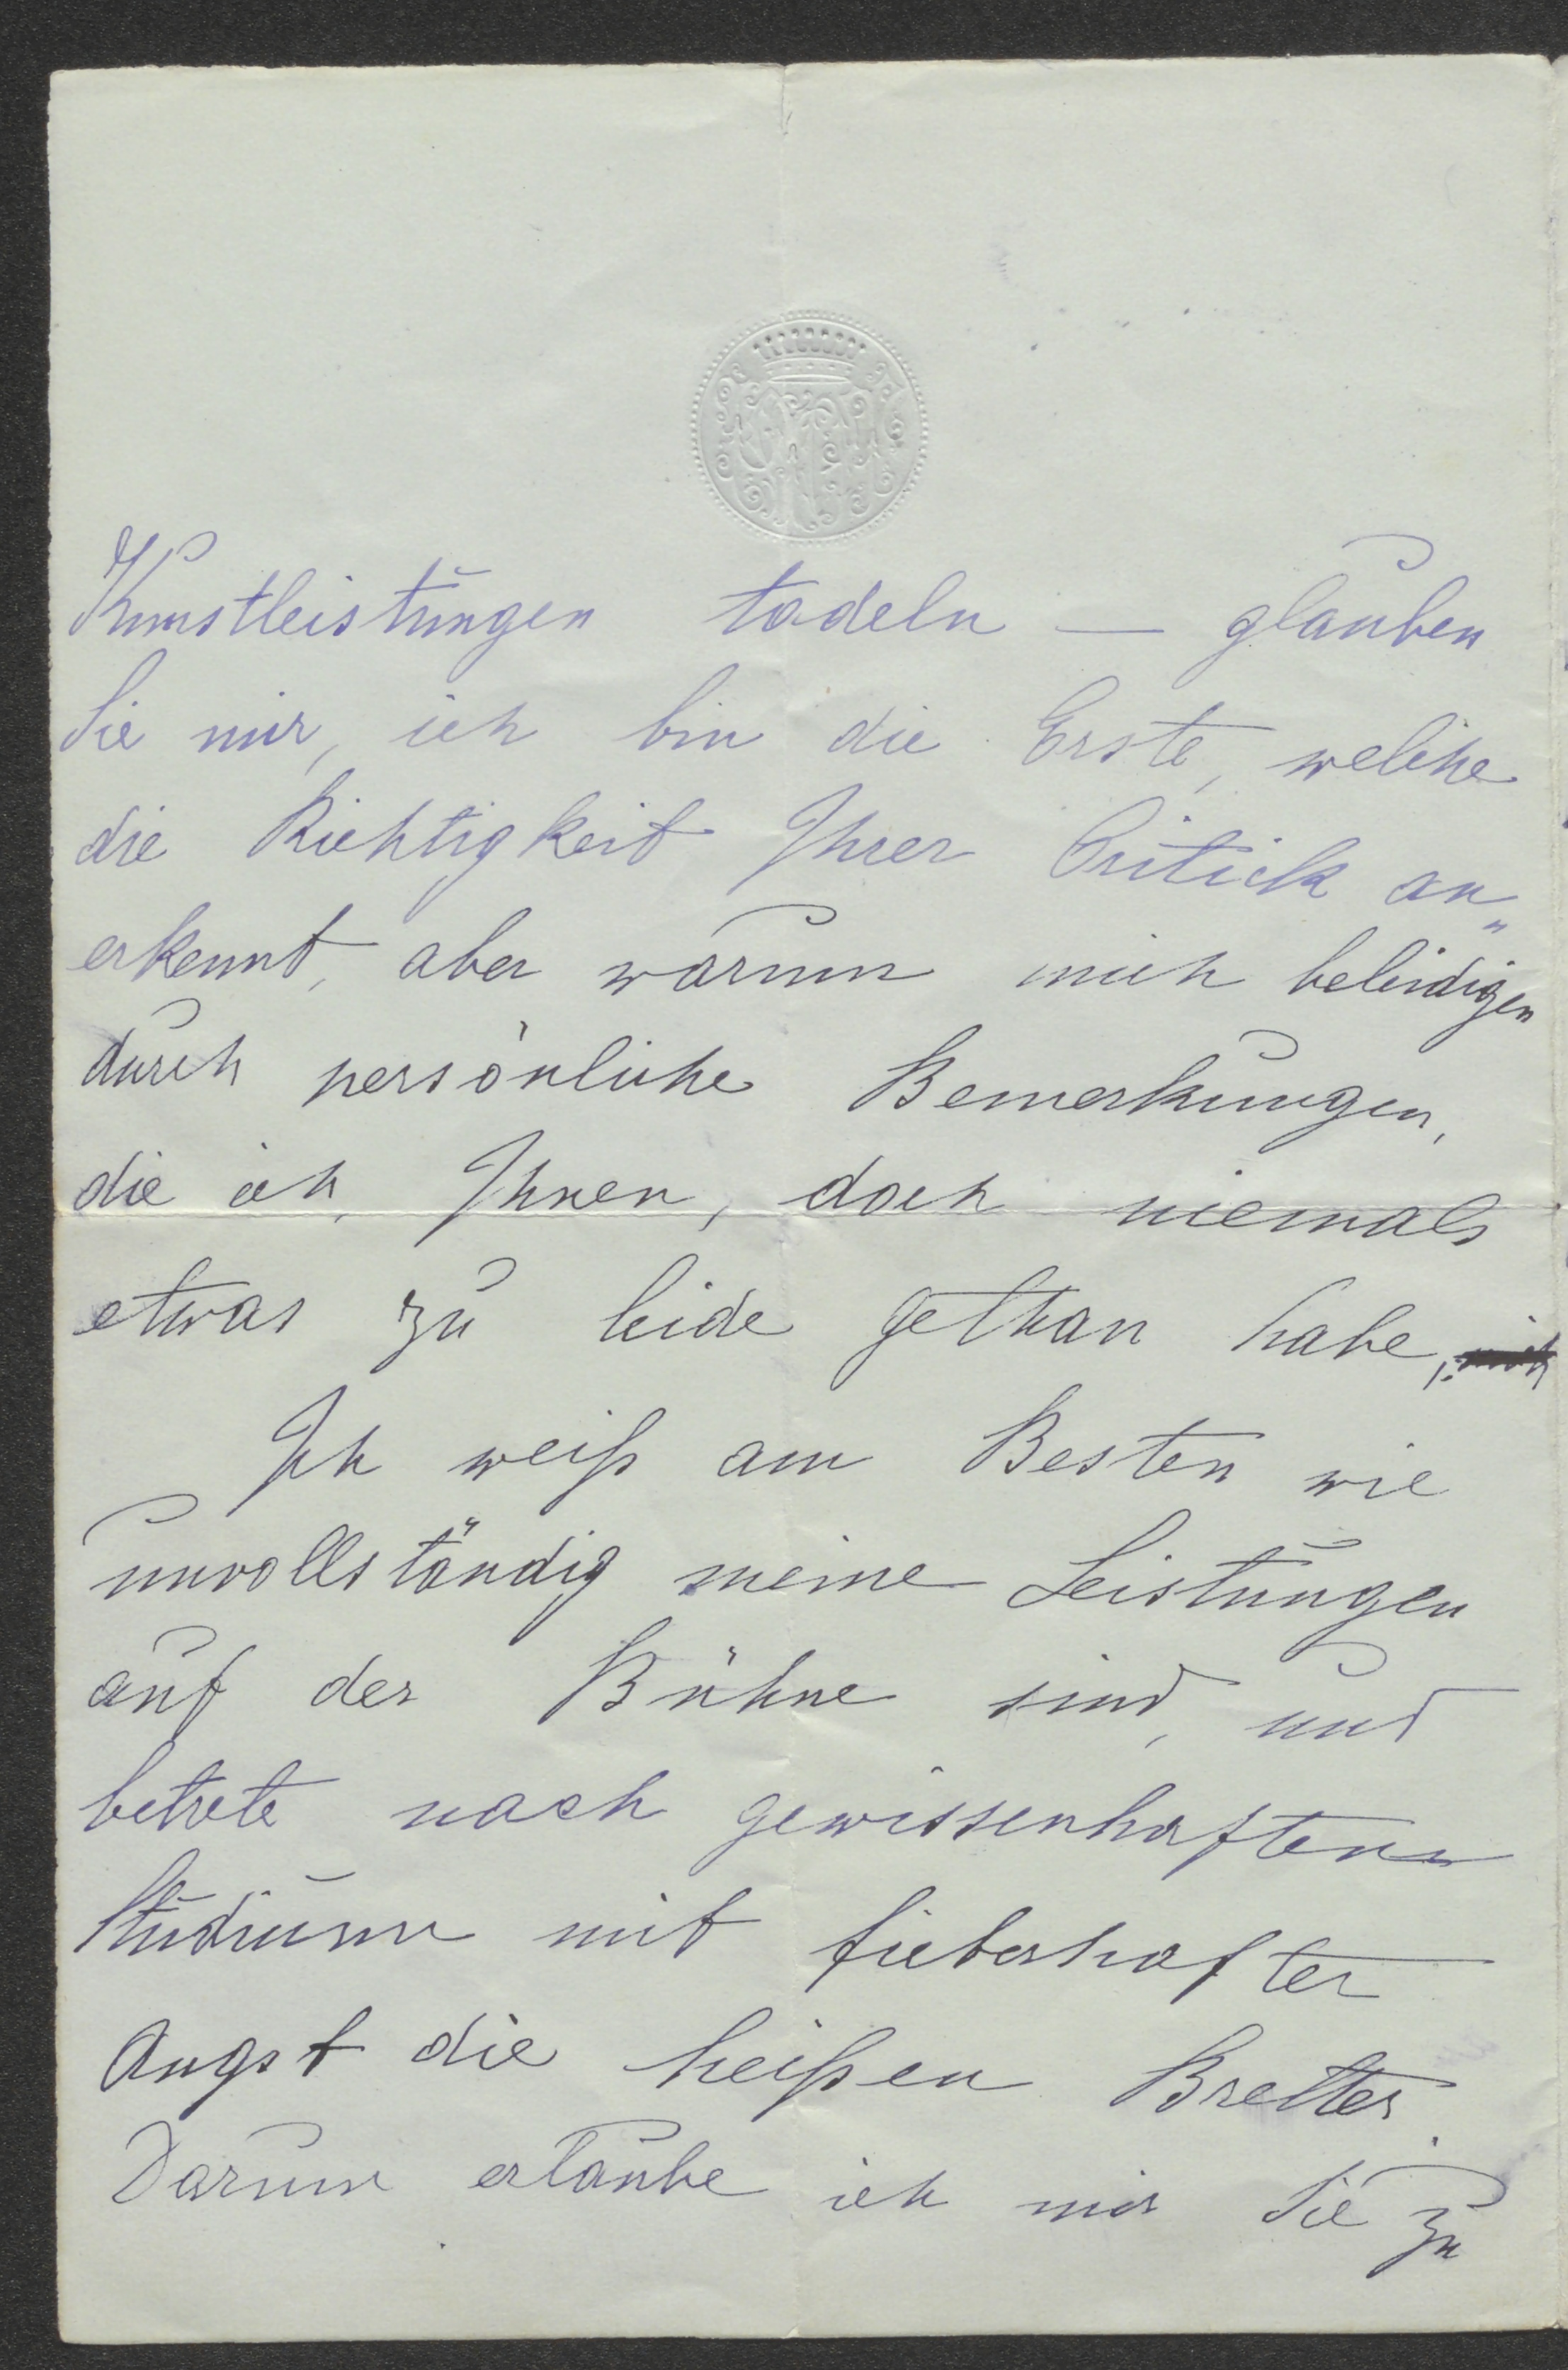 Kunstleistungen tadeln — glauben
Sie mir, ich bin die Erste, welche
die Richtigkeit Ihrer Critick an„
erkennt, aber warum mich beleidigen
durch persönliche Bemerkungen,
die ich, Ihnen, doch niemals
etwas zu leide gethan habe,
Ich weiß am Besten wie
unvollständig meine Leistungen
auf der Bühne sind, und
betrete nach gewissenhaftem
Studium mit fieberhafter
Angst die heißen Bretter.
Darum erlaube ich mir Sie zu